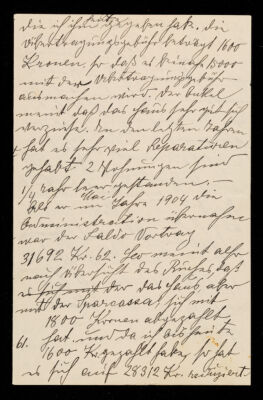 die ich ihm gegeben hab, die
Übertragungsgebühr beträgt 1600
Kronen, so daß es beinah 15000
mit der Übertragungsgebühr
ausmachen wird. Der Onkel
meint daß das Haus sehr gut sich
verzinse. In den letzten Jahren
hat es sehr viel Reparaturen
gehabt 2 Wohnungen sind
1/4 Jahr leer gestanden.
Als er im Jahre 1904 die
Administration übernahm
war der Saldo Vortrag
31692 Kr. 62. Leo meint aber
nach des daß
es das Haus aber
mit der Sparcassa sich mit
1800 Kronen abgezahlt
hat und da ich als heute
1600 Kr. gezahlt habe, so hat
es sich auf 28312 Kr. reduziert